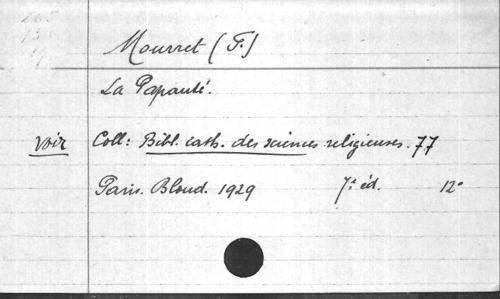 Mourret (F.)
La Papauté.
voir Coll: Bibl. cath. des sciences religieuses. 77
Paris. Bloud. 1929 7e éd. 12°